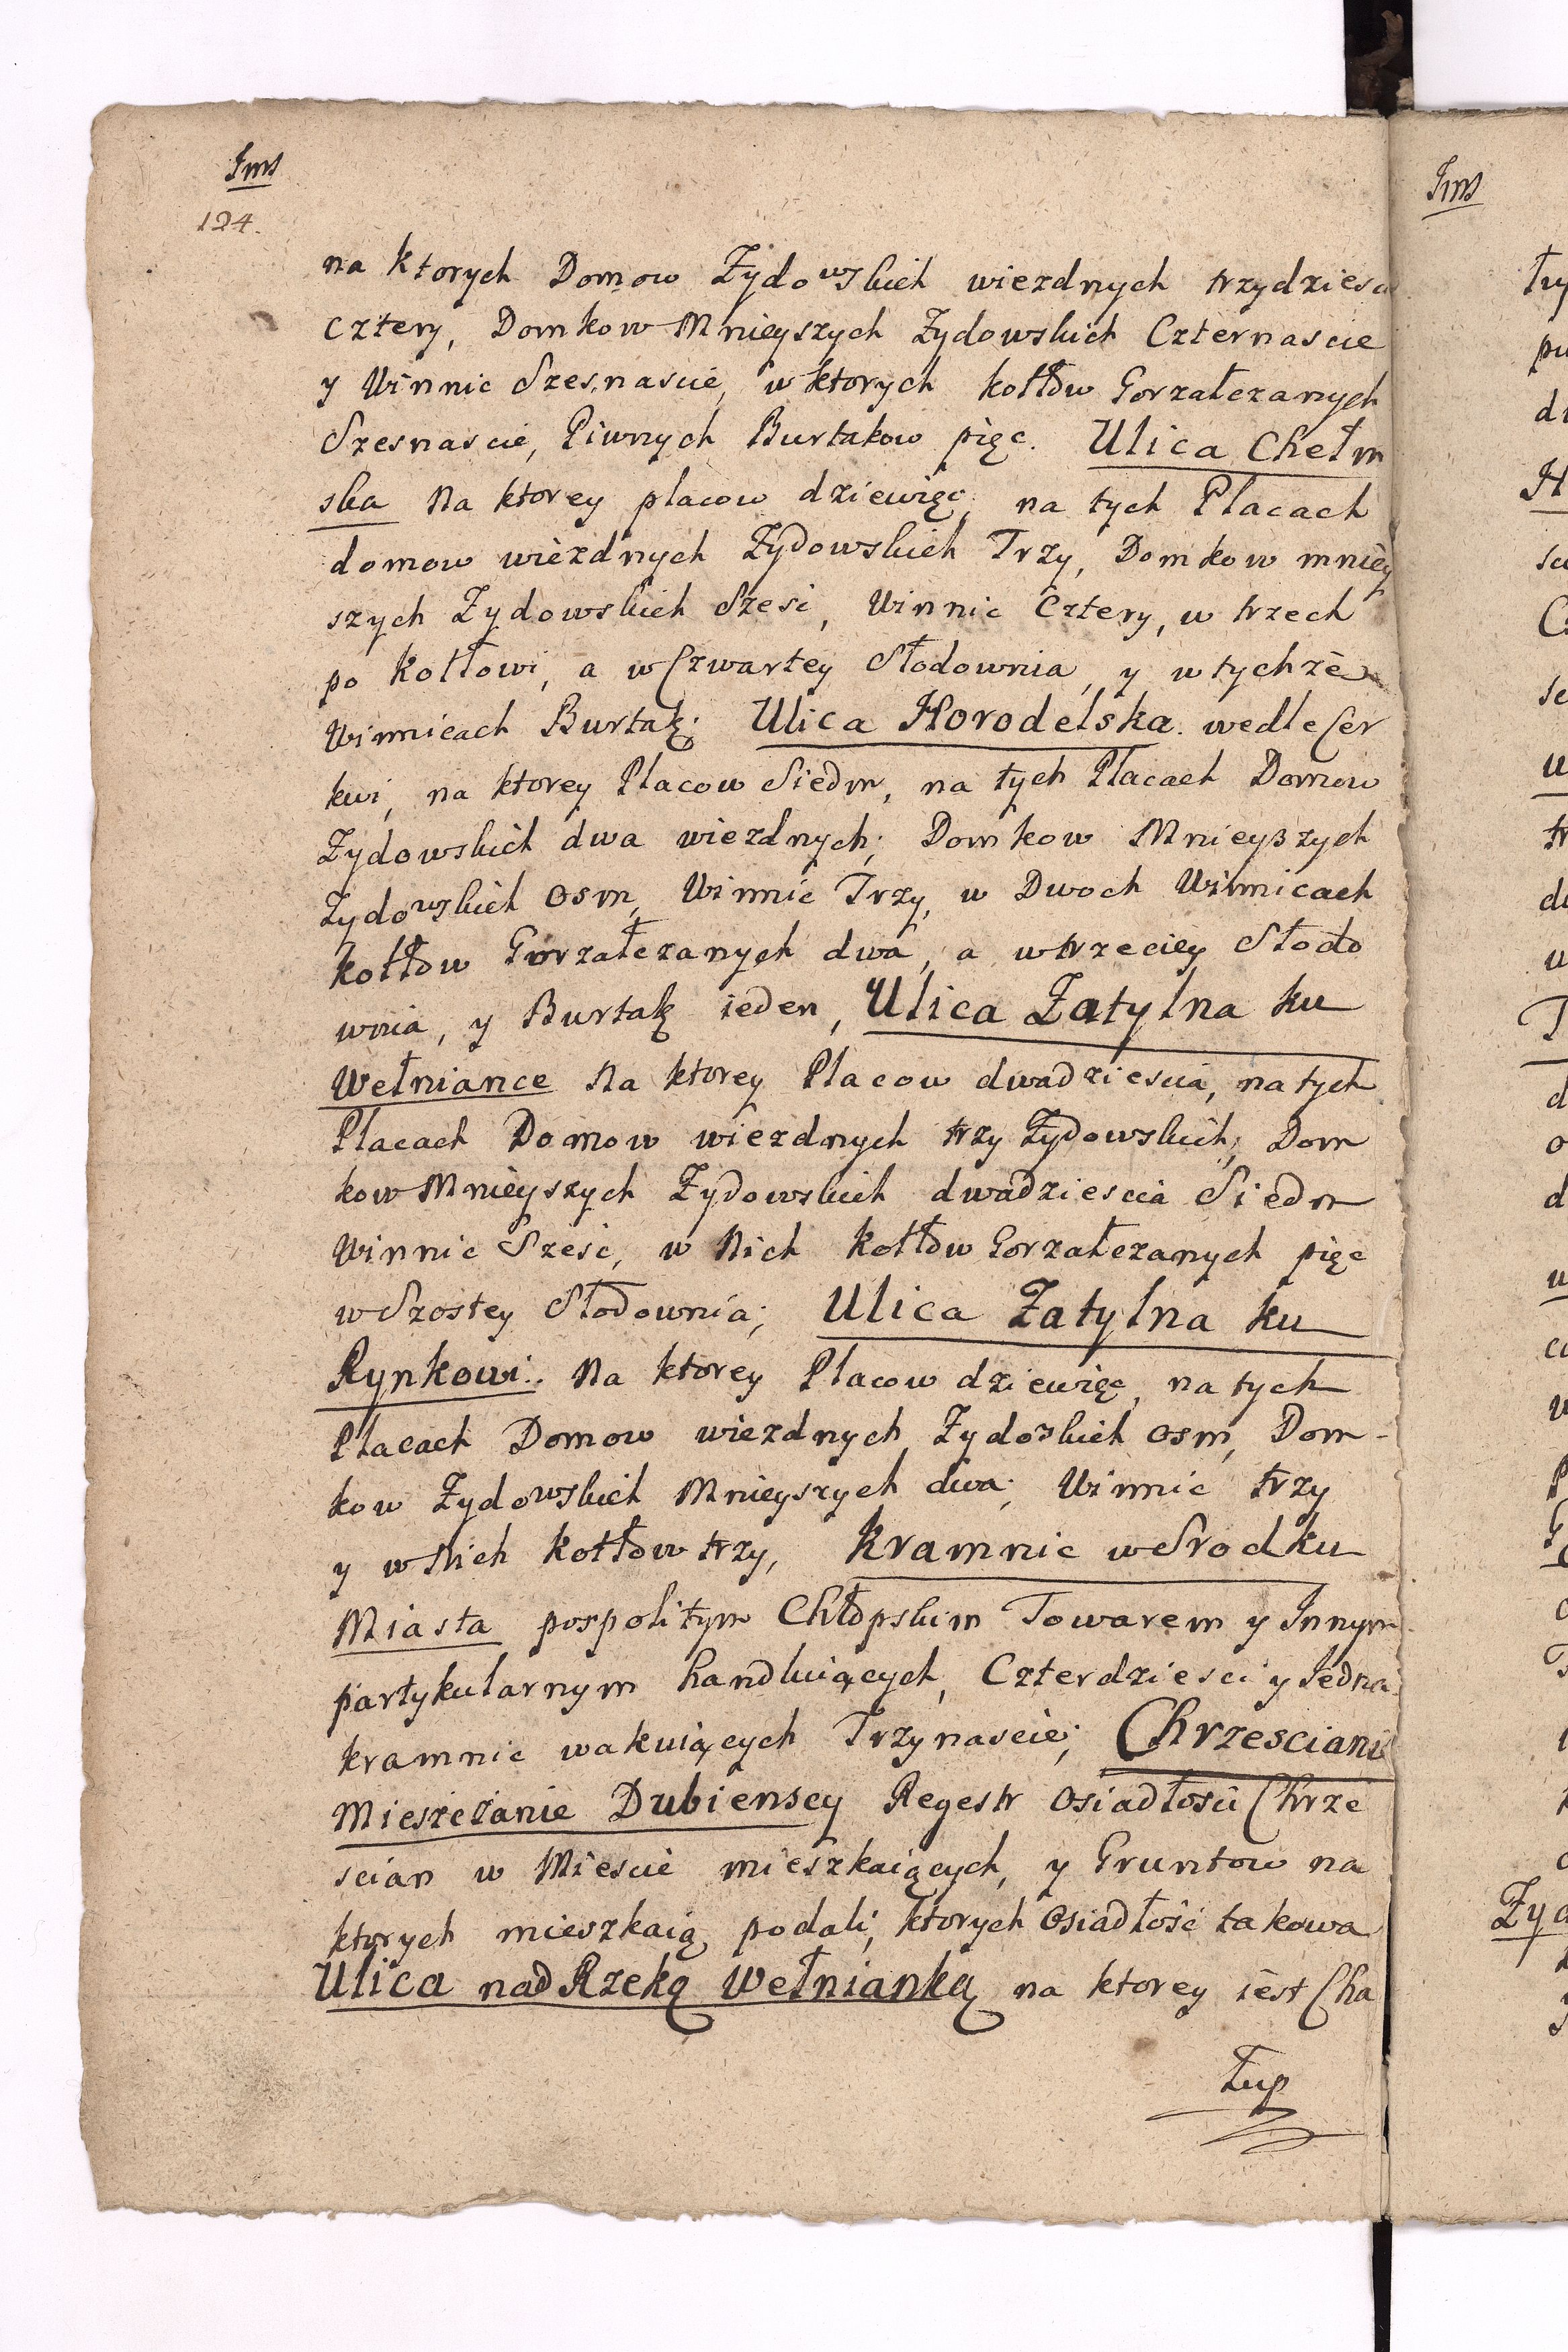 124.
na ktorych Domow Zydowskich wiezdnych trzydziesci
cztery, Domkow Mnieyszych Zydowskich Czternascie
y Winnic Szesnascie, w ktorych kotłow Gorzałczanych
Szesnascie, Piwnych Burtakow pięc. Ulica Chełm
ska Na ktorey placow dziewięc, na tych Placach
domow wiezdnych Zydowskich Trzy, Domkow mniey
szych Zydowskich Szesc, Winnic Cztery, w trzech
po Kotłowi, a w Czwartey Słodownia, y w tychże
Winnicach Burtak; Ulica Horodelska. wedle Cer
kwi, na ktorey Placow Siedm, na tych Placach Domow
Zydowskich dwa wiezdnych; Domkow Mnieyszych
Zydowskich Osm, Winnic Trzy, w Dwoch Winnicach
Kotłow Gorzałczanych dwa, a w trzeciey Słodo
wnia, y Burtak ieden, Ulica Zatylna ku
Wełniance Na ktorey Placow dwadziescia, na tych
Placach Domow wiezdnych trzy Zydowskich; Dom
kow Mnieyszych Zydowskich dwadziescia Siedm
Winnic Sześc, w Nich Kotłow Gorzałczanych pięc
w Szostey Słodownia; Ulica Zatylna ku
Rynkowi. Na ktorey Placow dziewięc, na tych
Placach Domow wiezdnych Zydoskich osm, Dom-
kow Zydowskich Mnieyszych dwa; Winnic trzy
y w Nich kotłow trzy, Kramnic w Srodku
Miasta pospolitym Chłopskim Towarem y Innym
partykularnym handluiących, Czterdziesci y Jedna
kramnic wakuiących Trzynascie; Chrzescianie
Mieszczanie Dubienscy Regestr Osiadłosci Chrze
scian w Miescie mieszkaiących, y Gruntow na
ktorych mieszkaią podali, ktorych Osiadłość takowa
Ulica nad Rzeką Wełnianką na ktorey iest Cha
Łup